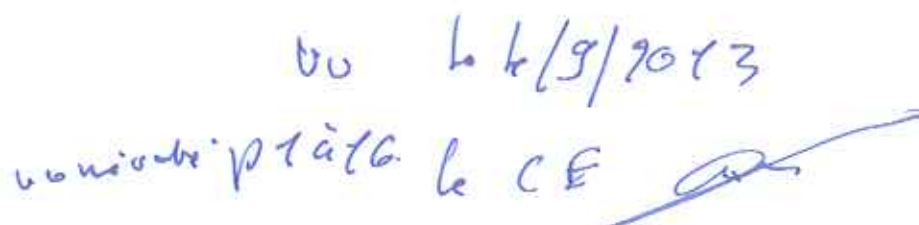 vu le 4/9/2013
p 1 à 16. le CE